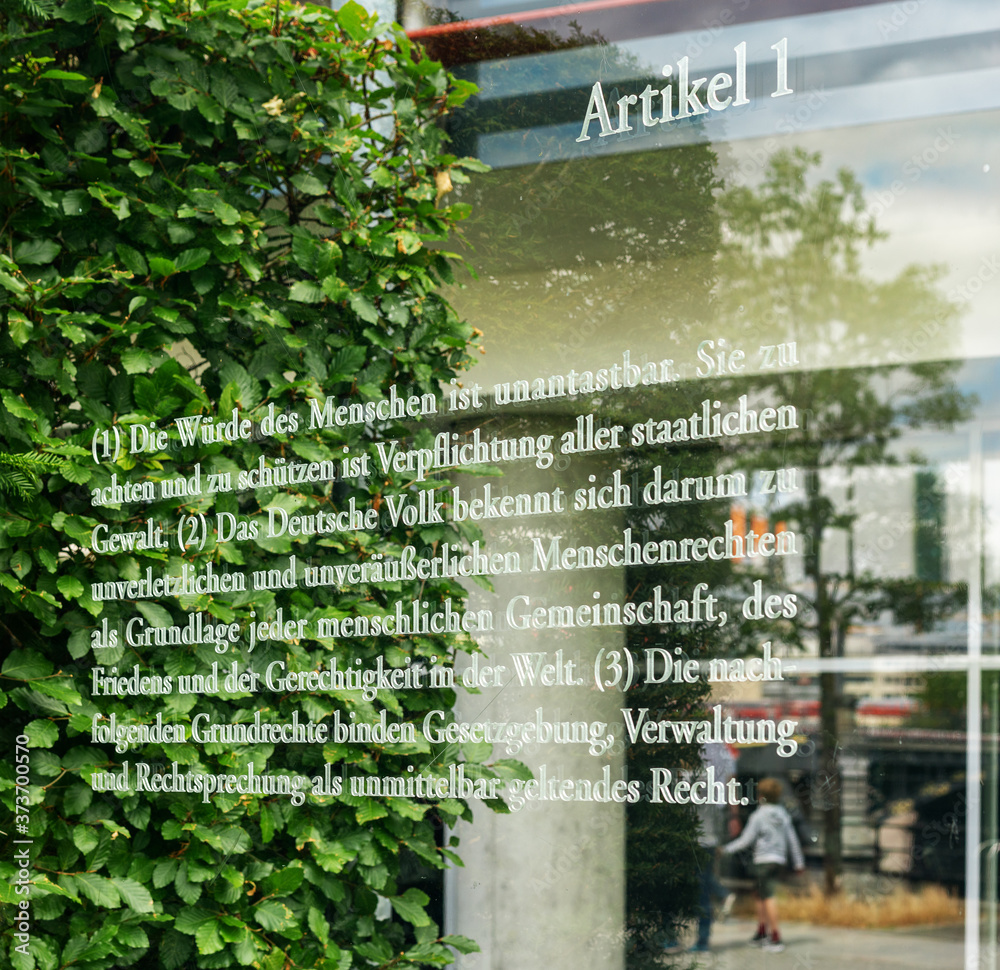 Artikel 1
(1) Die Würde des Menschen ist unantastbar. Sie zu
achten und zu schützen ist Verpflichtung aller staatlichen
Gewalt. (2) Das Deutsche Volk bekennt sich darum zu
unverletzlichen und unveräußerlichen Menschenrechten
als Grundlage jeder menschlichen Gemeinschaft, des
Friedens und der Gerechtigkeit in der Welt. (3) Die nach-
folgenden Grundrechte binden Gesetzgebung, Verwaltung
und Rechtsprechung als unmittelbar geltendes Recht.
Adobe Stock | #373700570